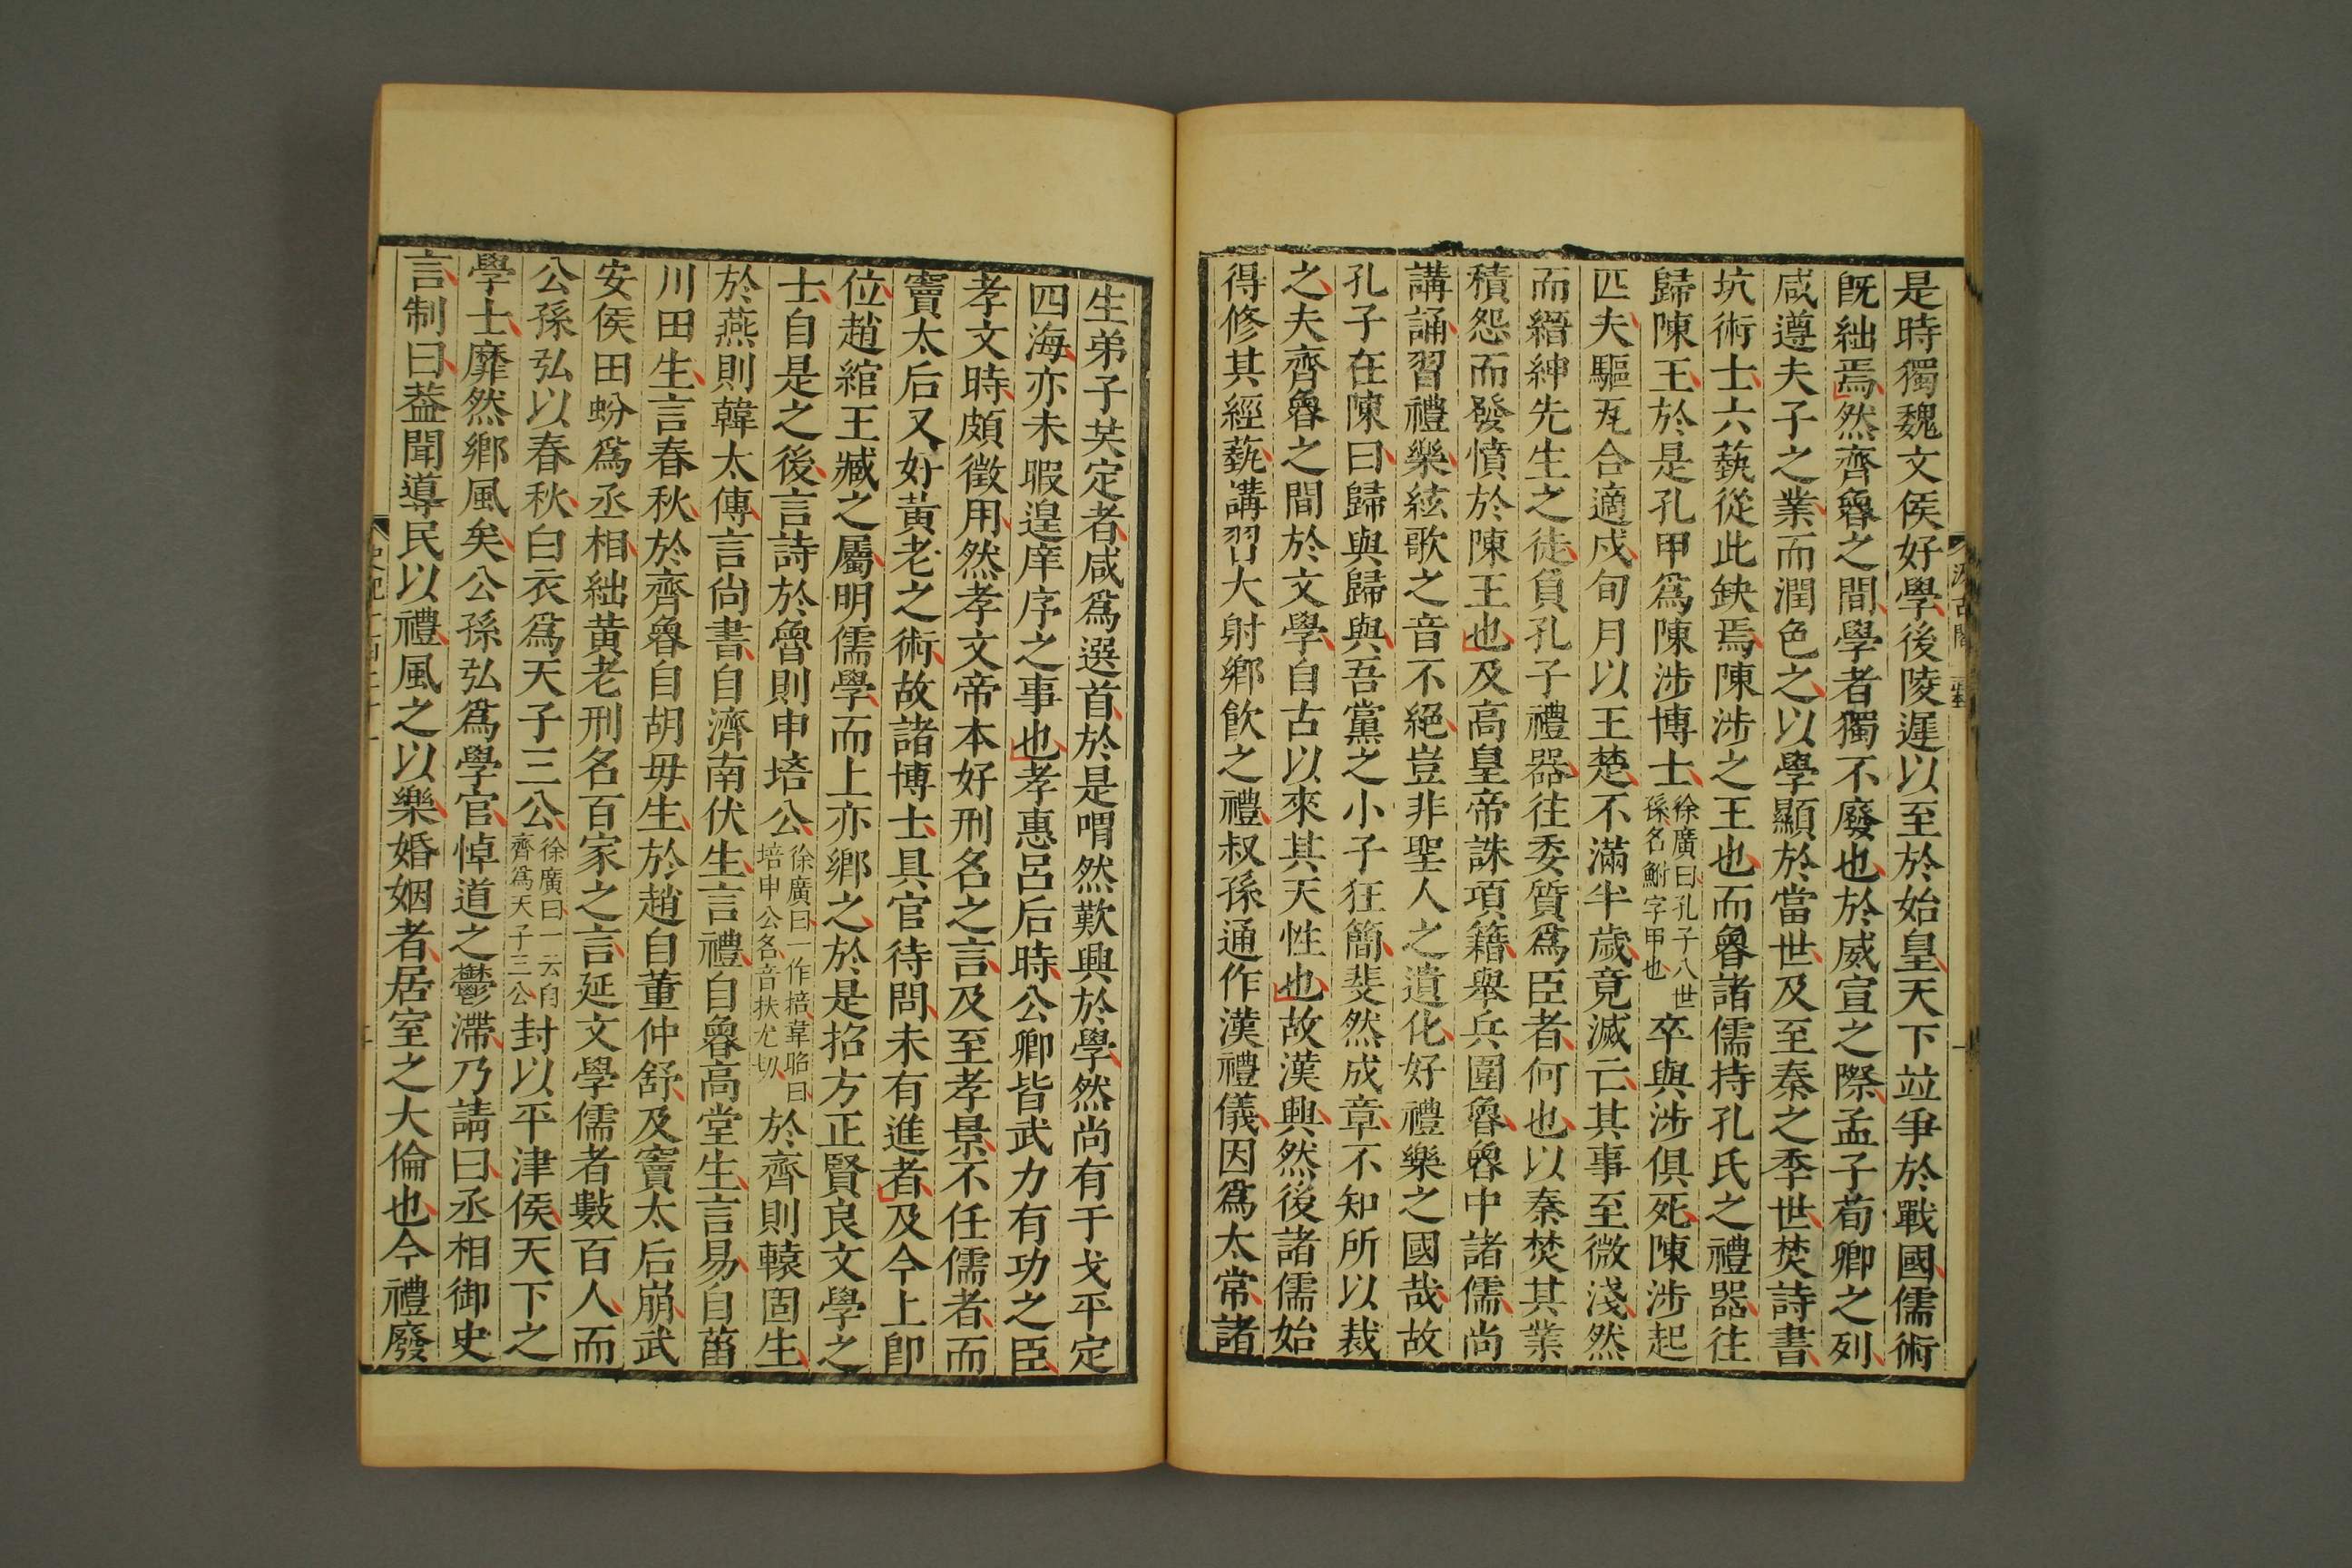 是時獨魏文侯好學後陵遲以至於始皇天下並爭於戰國儒術
旣絀焉然齊魯之間學者獨不廢也於威宣之際孟子荀卿之列
咸遵夫子之業而潤色之以學顯於當世及至秦之季世焚詩書
坑術士六藝從此缺焉陳涉之王也而魯諸儒持孔氏之禮器往
歸陳王於是孔甲爲陳涉博士徐廣曰孔子八世孫名鮒字甲也卒與涉俱死陳涉起
匹夫驅瓦合適戍旬月以王楚不滿半歲竟滅亡其事至微淺然
而縉紳先生之徒負孔子禮器往委質爲臣者何也以秦焚其業
積怨而發憤於陳王也及高皇帝誅項籍舉兵圍魯魯中諸儒尚
講誦習禮樂絃歌之音不絕豈非聖人之遺化好禮樂之國哉故
孔子在陳曰歸與歸與吾黨之小子狂簡斐然成章不知所以裁
之夫齊魯之間於文學自古以來其天性也故漢興然後諸儒始
得修其經藝講習大射鄉飮之禮叔孫通作漢禮儀因爲太常諸
生弟子共定者咸爲選首於是喟然歎興於學然尚有干戈平定
四海亦未暇遑庠序之事也孝惠呂后時公卿皆武力有功之臣
孝文時頗徵用然孝文帝本好刑名之言及至孝景不任儒者而
竇太后又好黃老之術故諸博士具官待問未有進者及今上卽
位趙綰王臧之屬明儒學而上亦鄉之於是招方正賢良文學之
士自是之後言詩於魯則申培公徐廣曰一作掊韋昭曰培申公名音扶尤切於齊則轅固生
於燕則韓太傅言尚書自濟南伏生言禮自魯高堂生言易自菑
川田生言春秋於齊魯自胡毋生於趙自董仲舒及竇太后崩武
安侯田蚡爲丞相絀黃老刑名百家之言延文學儒者數百人而
公孫弘以春秋白衣爲天子三公徐廣曰一云自齊爲天子三公封以平津侯天下之
學士靡然鄉風矣公孫弘爲學官悼道之鬱滯乃請曰丞相御史
言制曰葢聞導民以禮風之以樂婚姻者居室之大倫也今禮廢